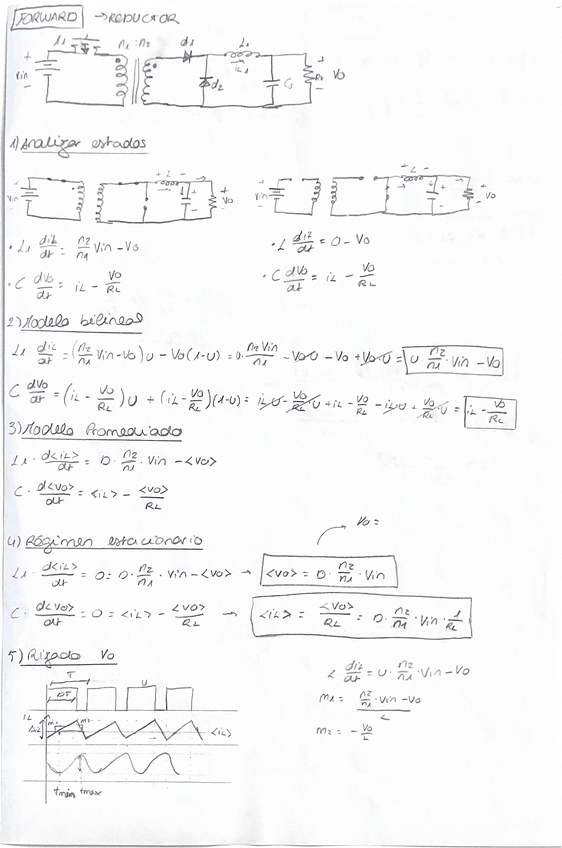 FORWARD → REDUCTOR
L1 n1 : n2 d1 L1
+ Vin - iL1 d2 C1 + RL - Vo
1) Analizar estados
+ L - + L -
Vin Vo Vin Vo
· L1 diL/dt = n2/n1 Vin - Vo · L diL/dt = 0 - Vo
· C dVo/dt = iL - Vo/RL · C dVo/dt = iL - Vo/RL
2) Modelo bilineal
L1 diL/dt = (n2/n1 Vin - Vo) U - Vo (1-U) = U · n2 Vin/n1 - Vo U - Vo + Vo U = U · n2/n1 · Vin - Vo
C dVo/dt = (iL - Vo/RL) U + (iL - Vo/RL)(1-U) = iL U - Vo/RL U + iL - Vo/RL - iL U + Vo/RL U = iL - Vo/RL
3) Modelo Promediado
L1 · d<iL>/dt = D · n2/n1 · Vin - <Vo>
C · d<Vo>/dt = <iL> - <Vo>/RL
Vo =
4) Régimen estacionario
L1 · d<iL>/dt = 0 = D · n2/n1 · Vin - <Vo> → <Vo> = D · n2/n1 · Vin
C · d<Vo>/dt = 0 = <iL> - <Vo>/RL → <iL> = <Vo>/RL = D · n2/n1 · Vin · 1/RL
5) Rizado Vo
T
DT U
L diL/dt = U · n2/n1 · Vin - Vo
m1 = (n2/n1 · Vin - Vo)/L
m2 = - Vo/L
iL
ΔiL m1 m2 <iL>
tmin tmax